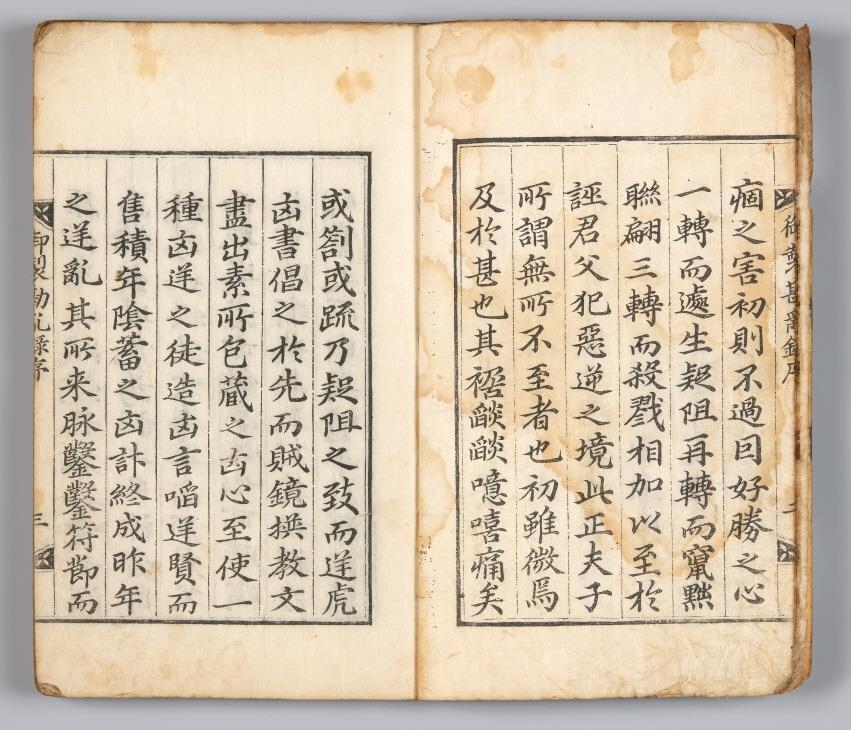 御製勘亂錄序
痼之害初則不過囙好勝之心
一轉而遽生疑阻再轉而竄黜
聯翩三轉而殺戮相加以至於
誣君父犯惡逆之境此正夫子
所謂無所不至者也初雖微焉
及於甚也其禍燄燄噫嘻痛矣
或劄或疏乃疑阻之致而逆虎
凶書倡之於先而賊鏡撰教文
盡出素所包藏之凶心至使一
種凶逆之徒造凶言啗逆賢而
售積年陰蓄之凶計終成昨年
之逆亂其所来脉鑿鑿符節而
御製勘乱錄序 三